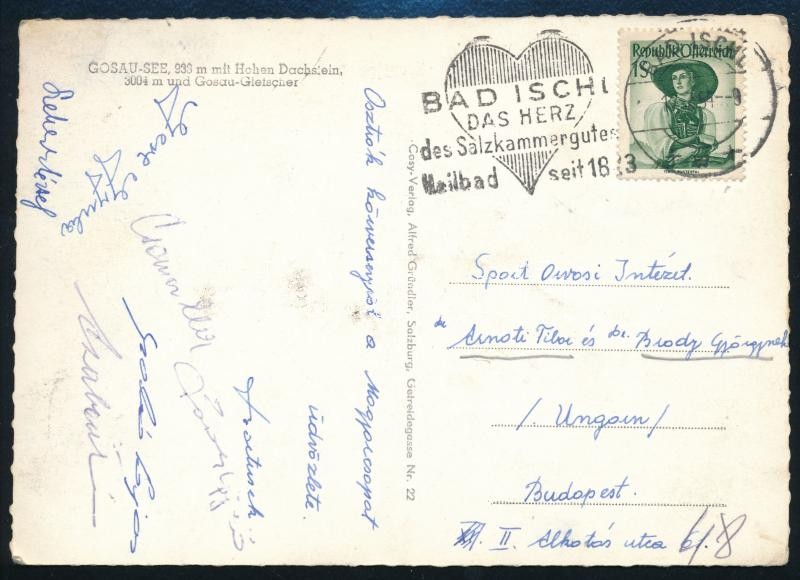 GOSAU-SEE, 933 m mit Hohen Dachstein,
3004 m und Gosau-Gletscher
Republik Österreich
1S
BAD ISCHL
DAS HERZ
des Salzkammergutes
Heilbad seit 1823
Cosy-Verlag, Alfred Gründler, Salzburg, Getreidegasse Nr. 22
Osztrák körversenyről a Magyarcsapat
üdvözlete.
Szabó Lajos
Sport Orvosi Intézet.
dr Arnoti Tibor és dr. Brody Györgynek
/Ungarn/
Budapest.
II. Alkotás utca 6/8